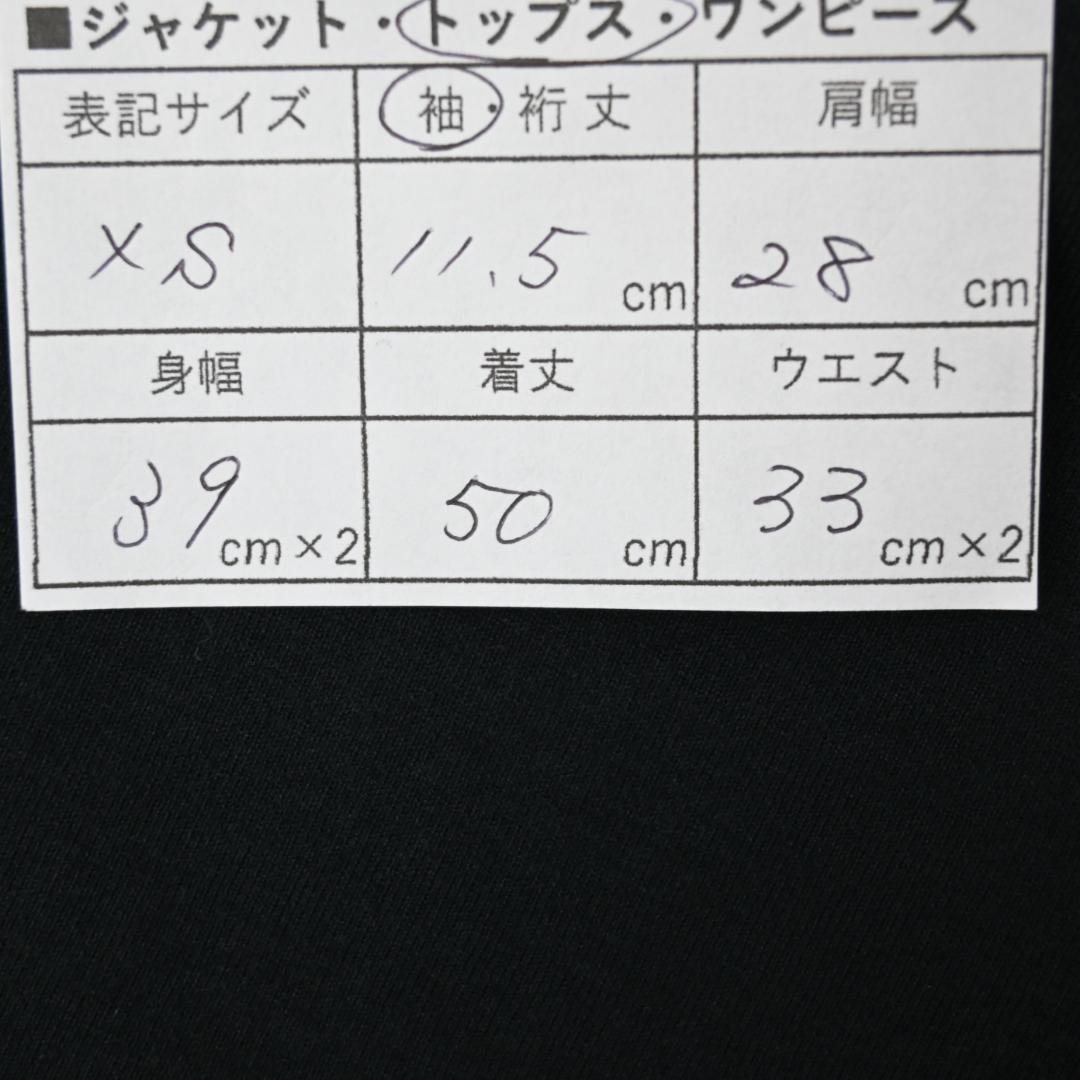 ■ジャケット・トップス・ワンピース
表記サイズ 袖・裄丈 肩幅
XS 11.5 cm 28 cm
身幅 着丈 ウエスト
39 cm×2 50 cm 33 cm×2